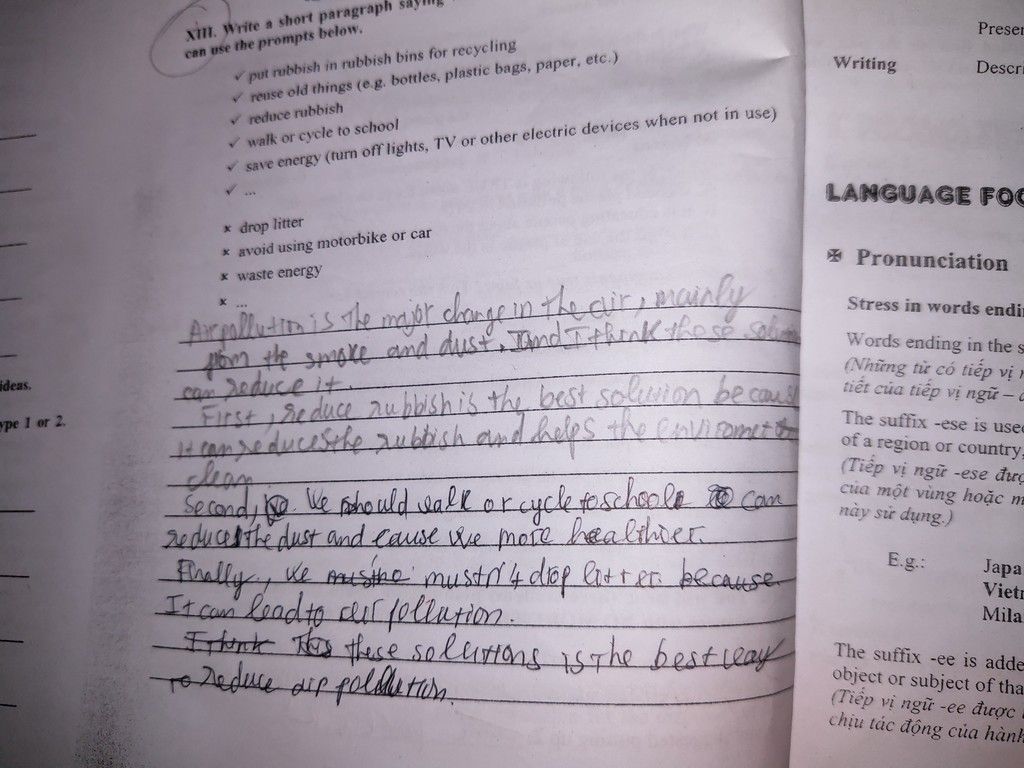 XIII. Write a short paragraph saying
can use the prompts below.
✓ put rubbish in rubbish bins for recycling
✓ reuse old things (e.g. bottles, plastic bags, paper, etc.)
✓ reduce rubbish
✓ walk or cycle to school
✓ save energy (turn off lights, TV or other electric devices when not in use)
✓ ...
× drop litter
× avoid using motorbike or car
× waste energy
× ...
Air pollution is the major change in the air, mainly
from the smoke and dust, and I think these
can reduce it.
First, reduce rubbish is the best solution
it can reduces the rubbish and helps the enviromet
clean
Second, We should walk or cycle to school can
reduce the dust and cause we more healthier.
Finally, we mustn't drop litter because
It can lead to air pollution.
I think these solutions is the best way
to reduce air pollution.
ideas.
ype 1 or 2.
Presen
Writing
Descri
LANGUAGE FOC
✠ Pronunciation
Stress in words endin
Words ending in the s
(Những từ có tiếp vị n
tiết của tiếp vị ngữ – â
The suffix -ese is used
of a region or country,
(Tiếp vị ngữ -ese được
của một vùng hoặc m
này sử dụng.)
E.g.:
Japa
Vietn
Mila
The suffix -ee is adde
object or subject of tha
(Tiếp vị ngữ -ee được
chịu tác động của hành